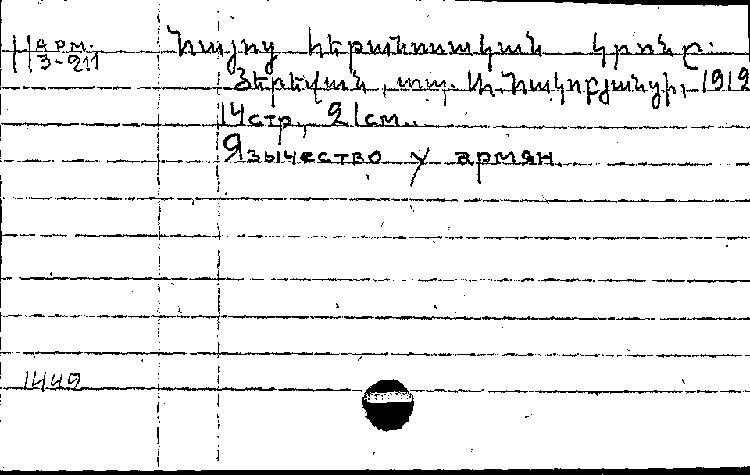 арм.
11 3-211
Հայոց հեթանոսական կրոնը.
Յերեվան, տպ. Ա. Հակոբյանցի, 1912
14 стр., 21 см.
Язычество у армян.
1449